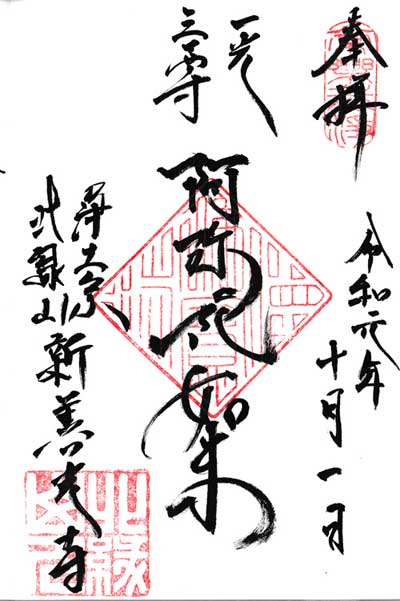 奉拝
令和元年
十月一日
一光
三尊
阿弥陀如来
浄土宗
北縁山新善光寺